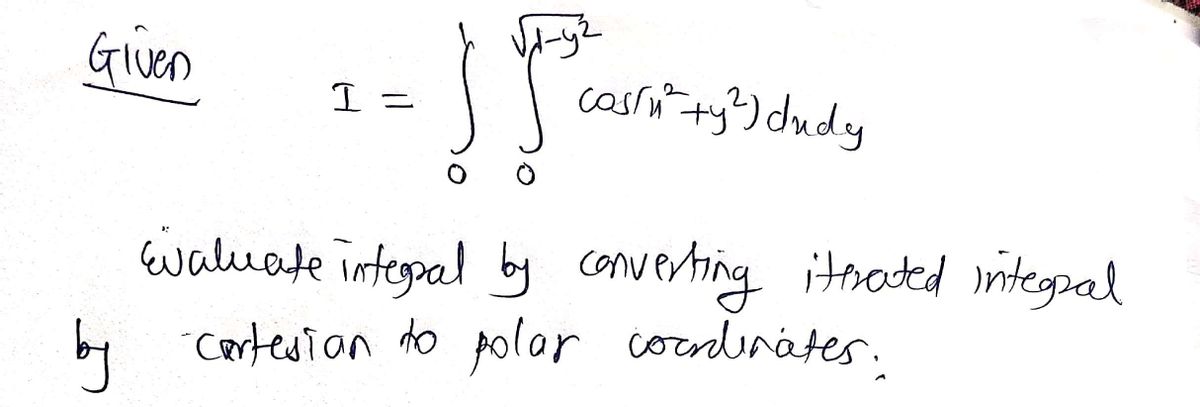 Given
I = ∫₀¹ ∫₀^√(1-y²) cos(x²+y²) dx dy
Evaluate integral by converting iterated integral
by cartesian to polar coordinates.